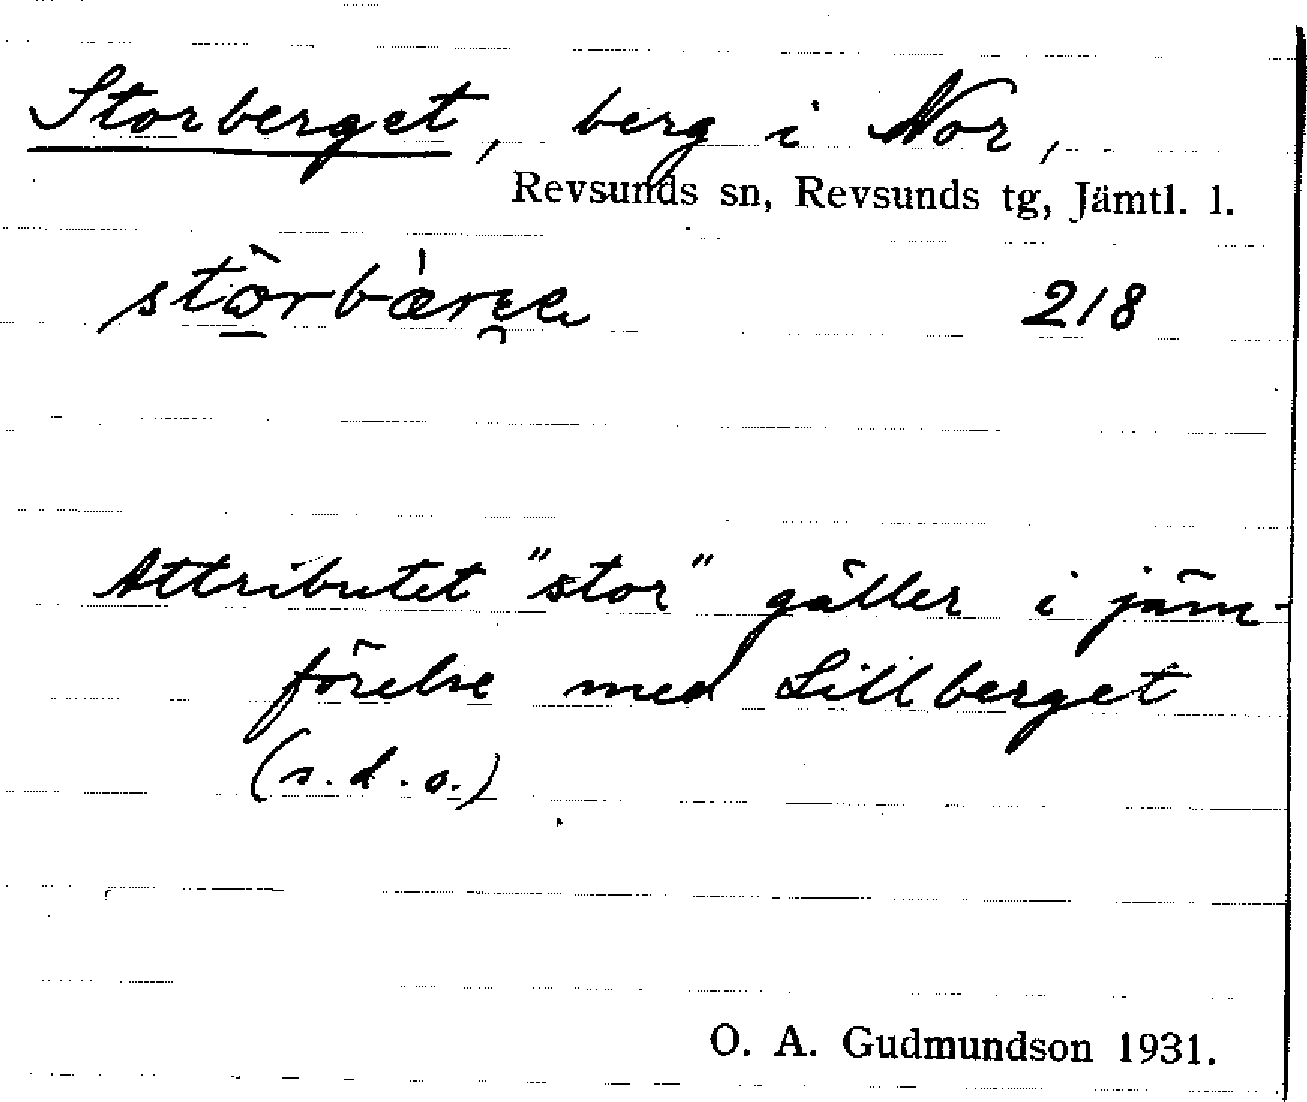 Storberget, berg i Nor,
Revsunds sn, Revsunds tg, Jämtl. l.
218
Attributet "stor" gäller i jäm-
förelse med Lillberget
(s.d.o.)
O. A. Gudmundson 1931.